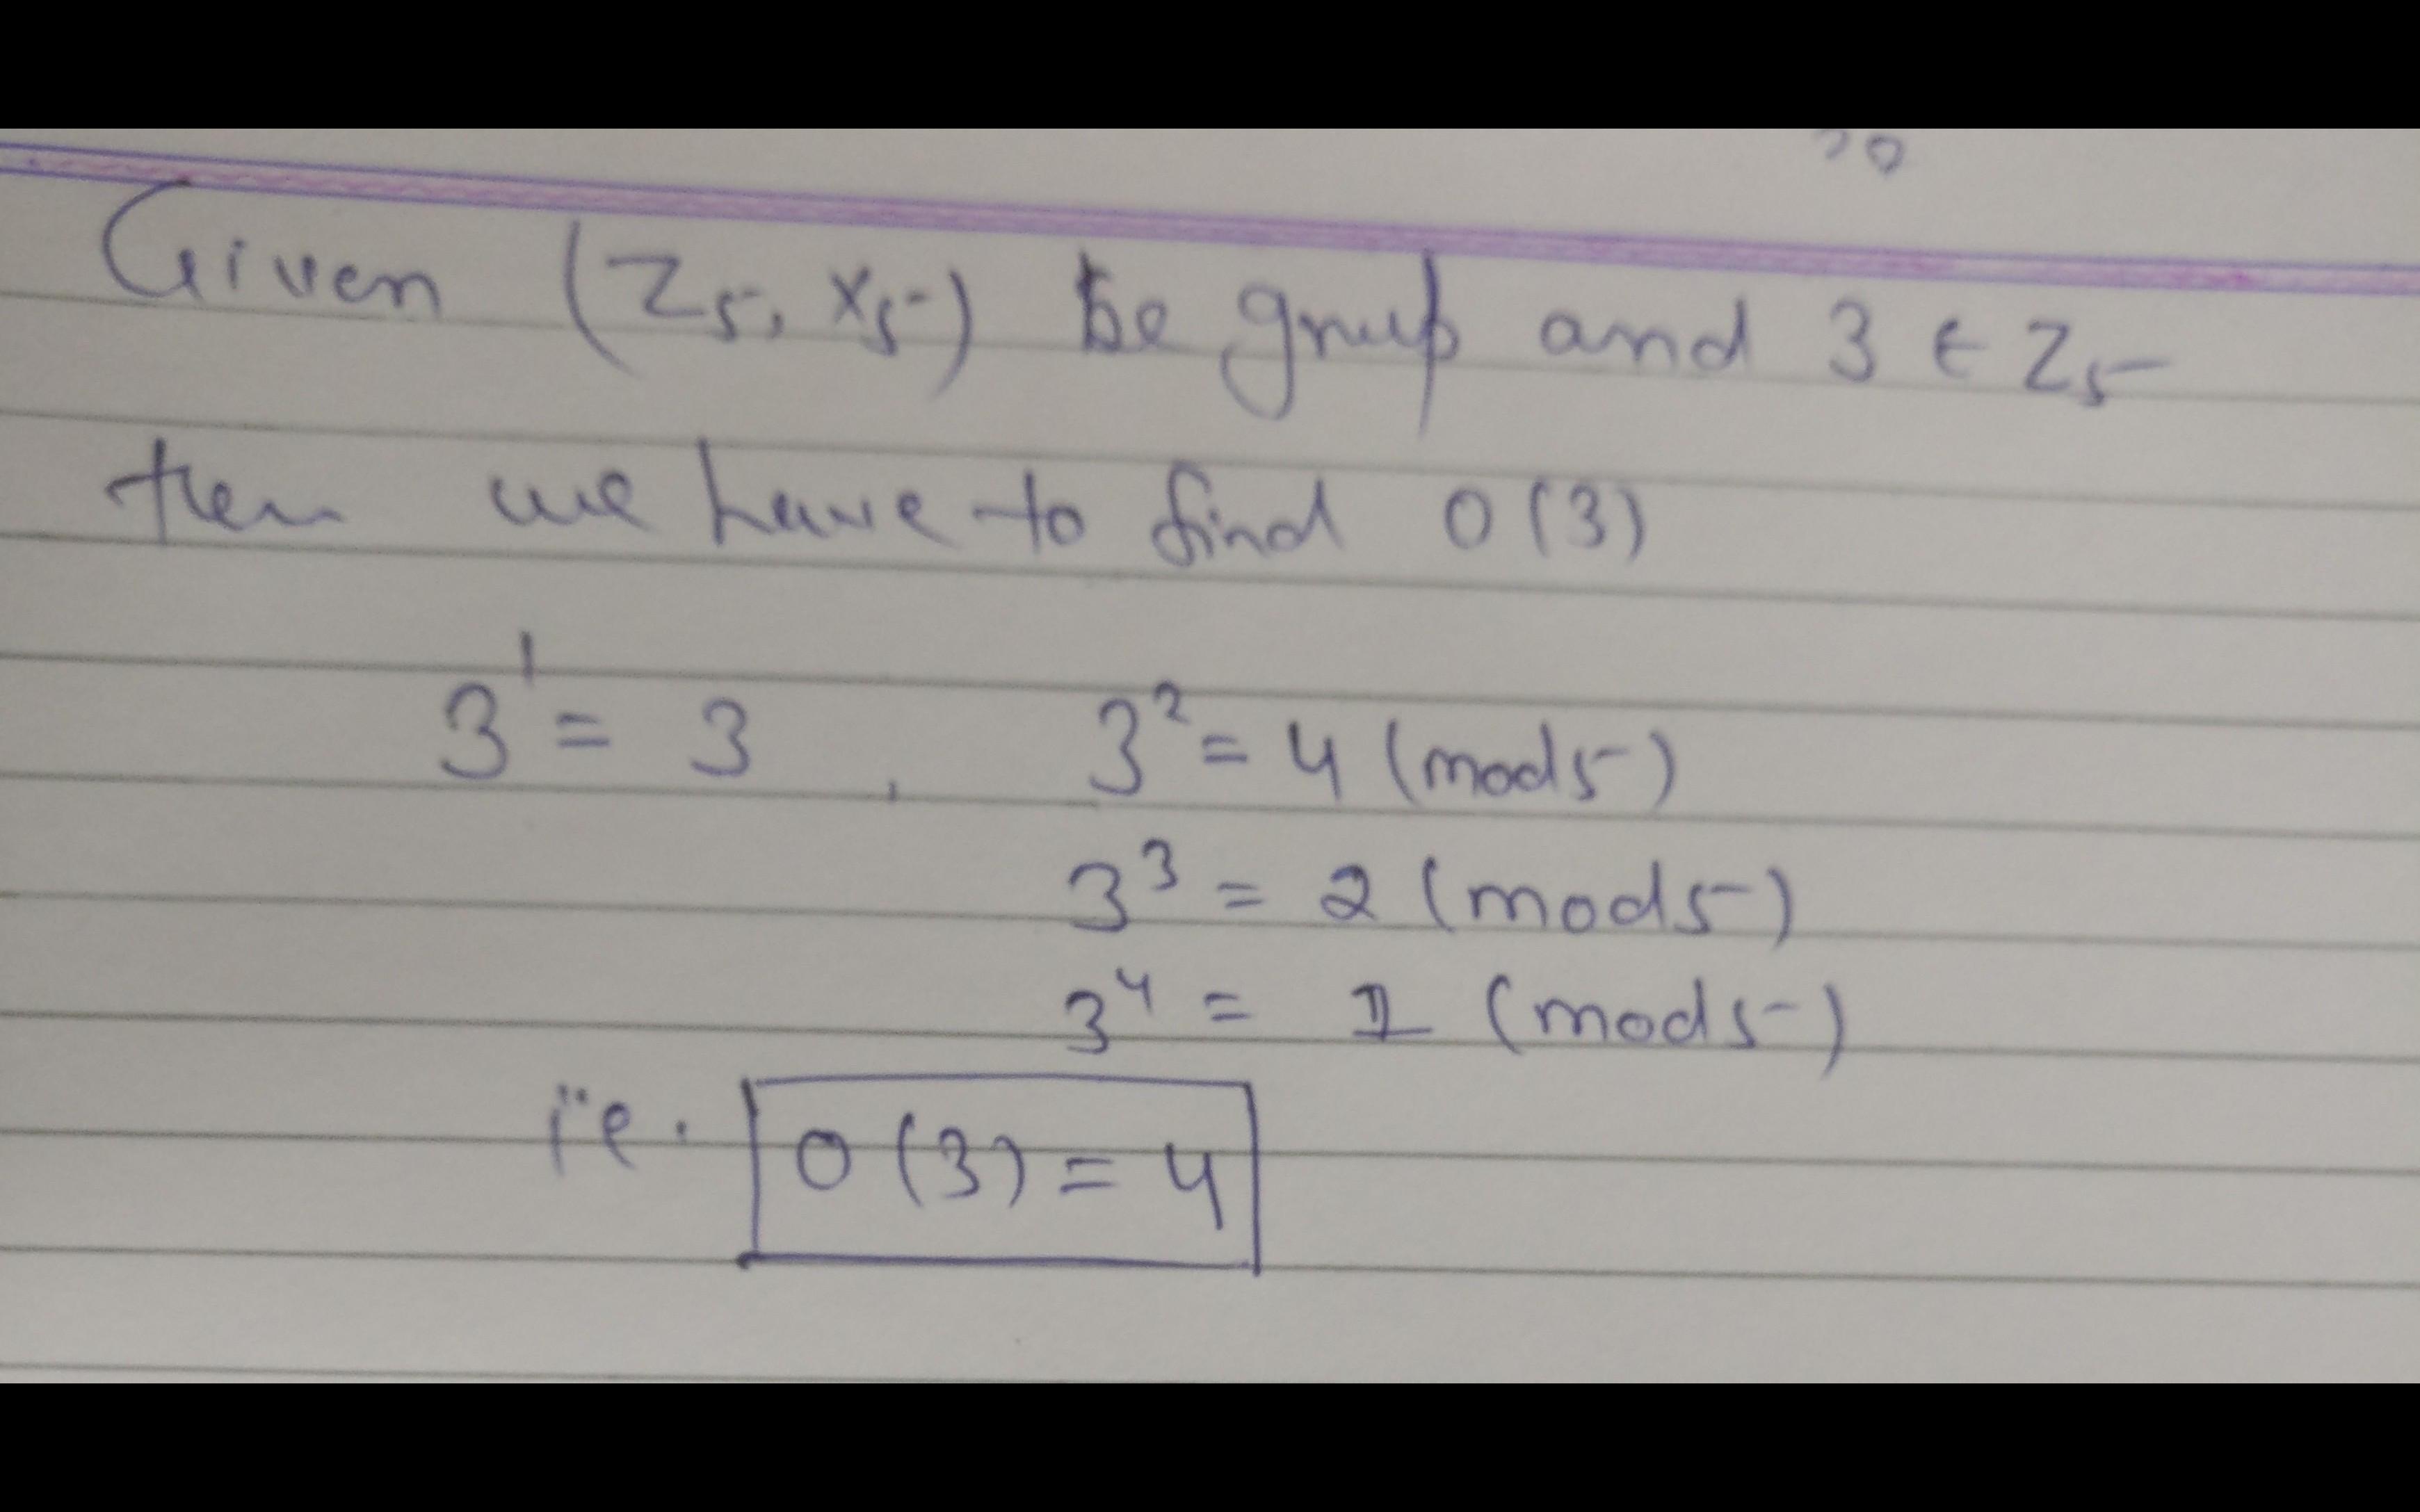 Given (Z5, ×5) be group and 3 ∈ Z5
then we have to find O(3)
3^1 = 3, 3^2 = 4 (mod5)
3^3 = 2 (mod5)
3^4 = 1 (mod5)
i.e. O(3) = 4